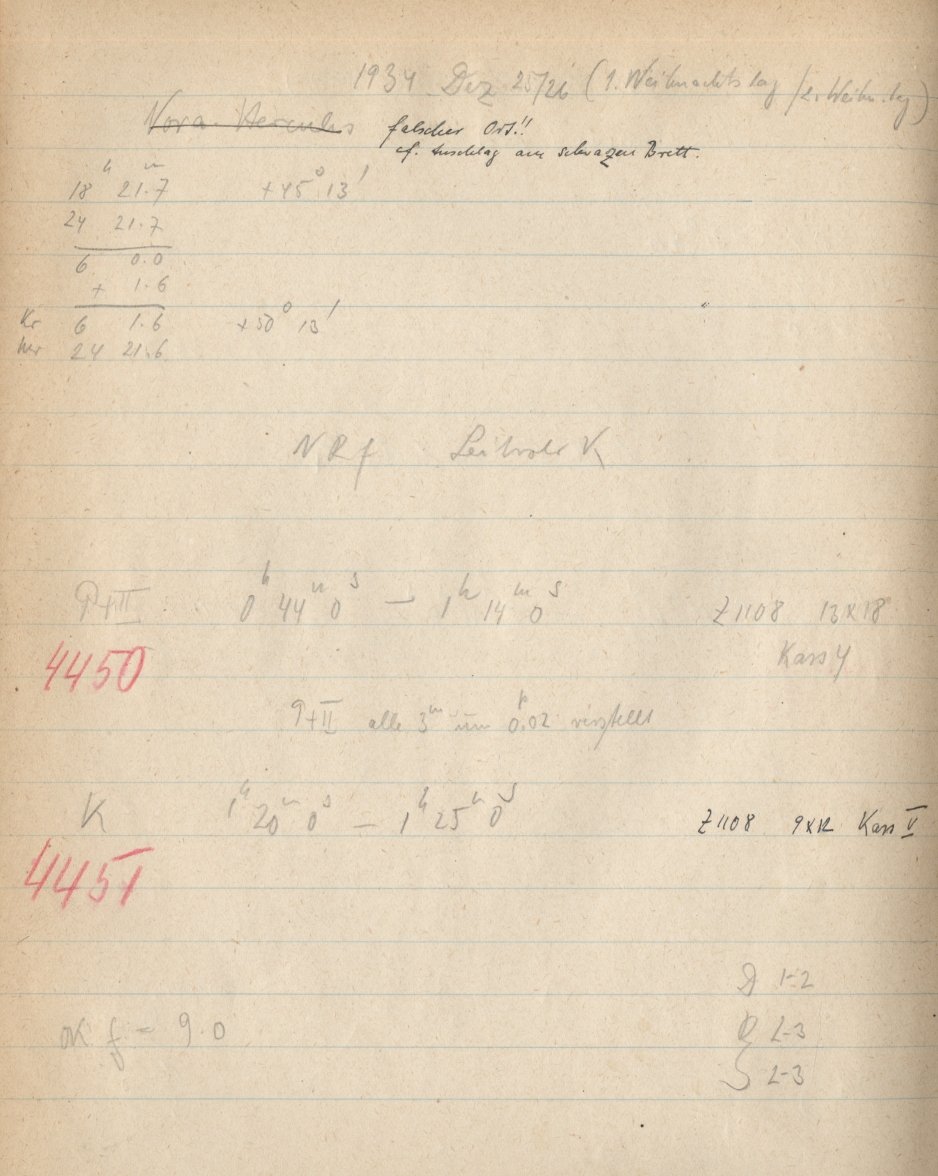 1934 Dez 25/26 (1. Weihnachtstag / 2. Weihn.tag)
Nova Herculis falscher Ort!!
cf. Anschlag am schwazen Brett.
18h 21.7m +45° 13'
24 21.7
6 0.0
+ 1.6
Kr 6 1.6 +50° 13'
Her 24 21.6
NRf Leitrohr K
P+II 0h 44m 0s — 1h 14m 0s Z1108 13x18
4450 Kass 4
P+II alle 3m um 0.02 verstellt
K 1h 20m 0s — 1h 25m 0s Z1108 9x12 Kass V
4451
D 1-2
OK f = 9.0 R 2-3
S 2-3